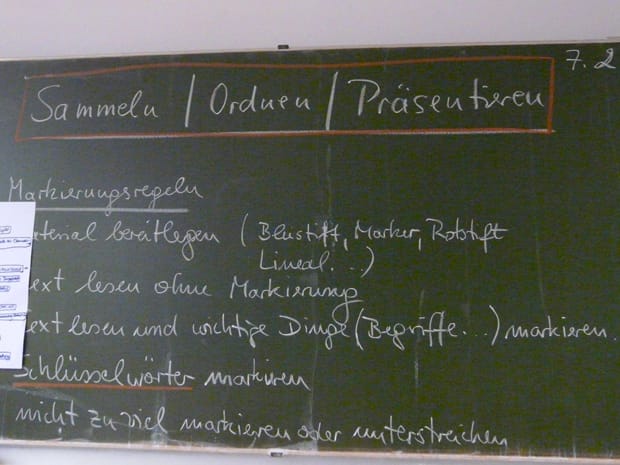 7.2
Sammeln / Ordnen / Präsentieren
Markierungsregeln
aterial bereitlegen ( Bleistift, Marker, Rotstift
Lineal...)
ext lesen ohne Markierung
ext lesen und wichtige Dinge (Begriffe...) markieren.
Schlüsselwörter markieren
nicht zu viel markieren oder unterstreichen